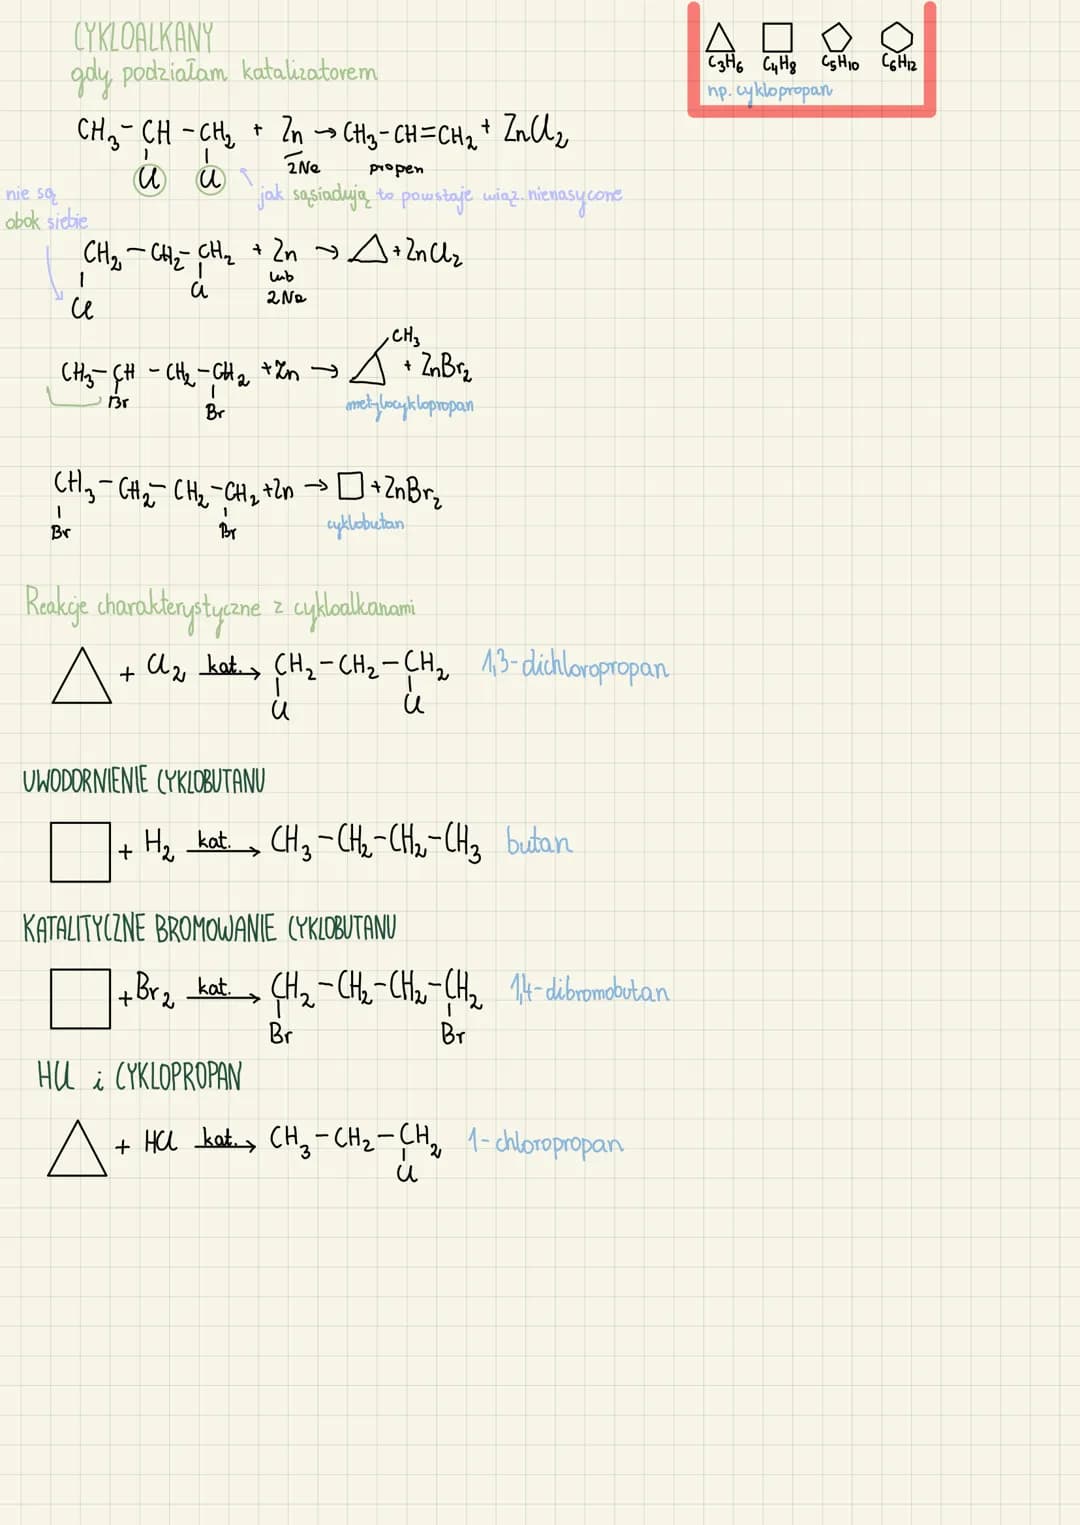 CYKLOALKANY
gdy podziałam katalizatorem
C₃H₆ C₄H₈ C₅H₁₀ C₆H₁₂
np. cyklopropan
CH₃-CH-CH₂ + Zn → CH₃-CH=CH₂ + ZnCl₂
Cl Cl
2Na propen
nie są
obok siebie
jak sąsiadują to powstaje wiąz. nienasycone
CH₂-CH₂-CH₂ + Zn → △ + ZnCl₂
Cl Cl
lub
2Na
CH₃
CH₃-CH-CH₂-CH₂ + Zn → △ + ZnBr₂
Br Br
metylocyklopropan
CH₃-CH₂-CH₂-CH₂ + Zn → □ + ZnBr₂
Br Br
cyklobutan
Reakcje charakterystyczne z cykloalkanami
△ + Cl₂ kat.→ CH₂-CH₂-CH₂ 1,3-dichloropropan
Cl Cl
UWODORNIENIE CYKLOBUTANU
□ + H₂ kat.→ CH₃-CH₂-CH₂-CH₃ butan
KATALITYCZNE BROMOWANIE CYKLOBUTANU
□ + Br₂ kat.→ CH₂-CH₂-CH₂-CH₂ 1,4-dibromobutan
Br Br
HCl i CYKLOPROPAN
△ + HCl kat.→ CH₃-CH₂-CH₂ 1-chloropropan
Cl